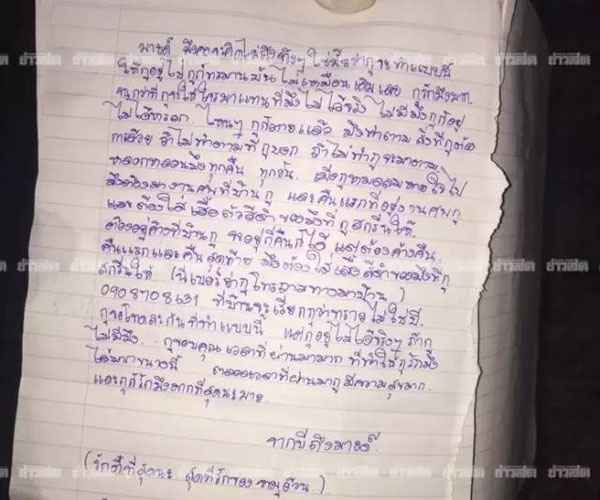 มายด์ มึงคงคิดไม่ถึงจริงๆ ใช่มั้ยว่ากูจะทำแบบนี้
ให้กูอยู่ไปกูก็ทรมานมันไม่เหมือนเดิมเลย กูรักมึงมาก
กูจะให้ใครมาแทนที่มึงไม่ได้จริง ไม่มีมึงกูก็อยู่
ไม่ได้หรอก ไหนๆ กูก็ตายแล้ว มึงทำตามสิ่งที่กูขอ
ด้วย ถ้าไม่ทำตามที่กูบอก ถ้าไม่ทำกูจะมาตาม
หลอกหลอนมึงทุกคืน ทุกวัน เมื่อกูหมดลมหายใจไป
มึงต้องมางานศพที่บ้านกู และคืนแรกที่อยู่งานศพกู
และต้องใส่เสื้อตัวสีดำของมึงที่กูสกรีนให้
ต้องอยู่ค้างที่บ้านกู จะอยู่กี่คืนก็ได้ แต่ต้องค้างคืน
คืนแรกและคืนสุดท้าย มึงต้องใส่เสื้อสีดำของมึงที่กู
สกรีนให้ (นี่เบอร์ย่ากูโทรถามทางมาบ้าน)
0908708631 ที่บ้านจะเรียกกูว่าทรายไม่ใช่บี
กูขอโทษละกันที่ทำแบบนี้ แต่กูอยู่ไม่ได้จริงๆ ถ้า
ไม่มีมึง.. กูขอบคุณเวลาที่ผ่านมามาก ที่ทำให้กูรักมึง
ได้มากขนาดนี้ ตลอดเวลาที่ผ่านมากูมีความสุขมาก
และกูก็รักมึงมากที่สุดนะมายด์
จากบีถึงมายด์.
(รักที่สุดนะ สุดที่รักของหมูอ้วน)
ข่าวสด